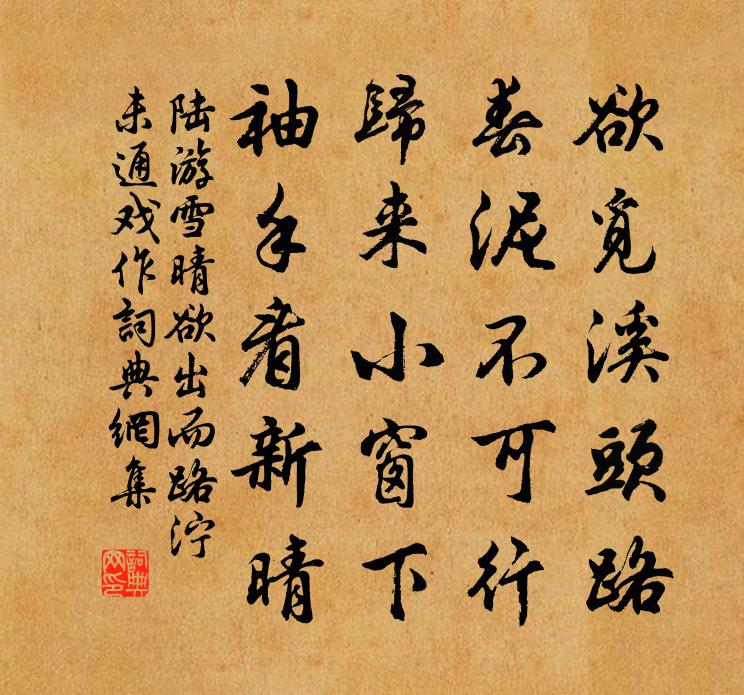 欲覓溪頭路
春泥不可行
歸来小窗下
袖手看新晴
陆游雪晴欲出而路泞
未通戏作詞典網集
詞典
网印